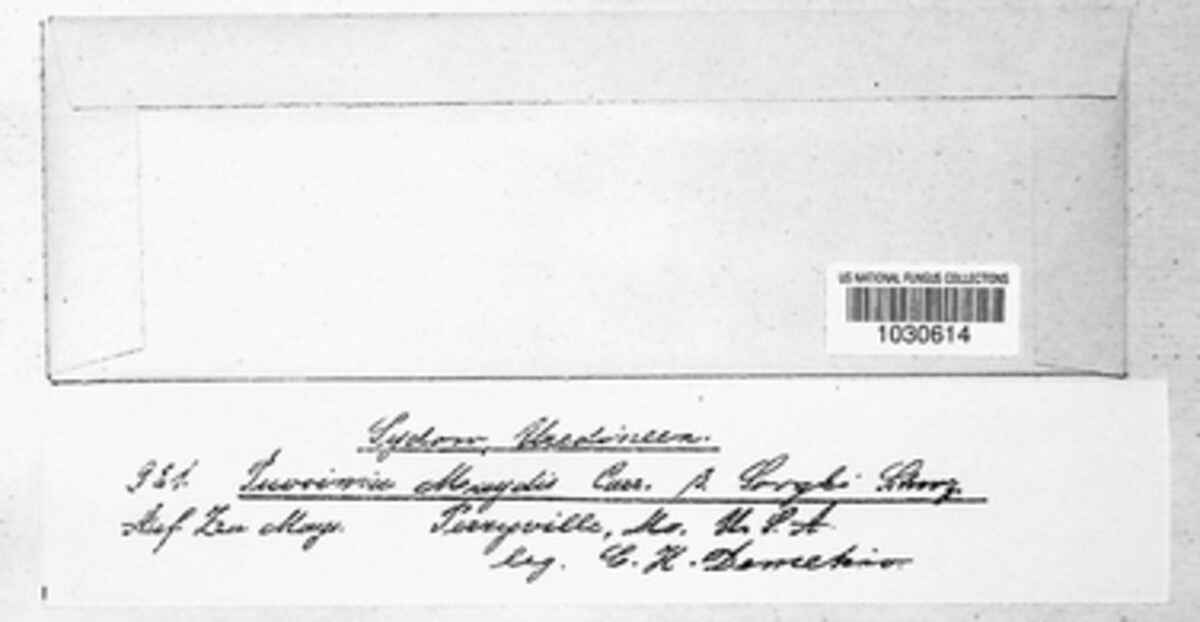 US NATIONAL FUNGUS COLLECTIONS
1030614
Sydow, Uredineen.
921. Puccinia Maydis Carr. β. Sorghi Schwz.
Auf Zea Mays. Perryville, Mo. U. S. A.
leg. C. H. Demetrio